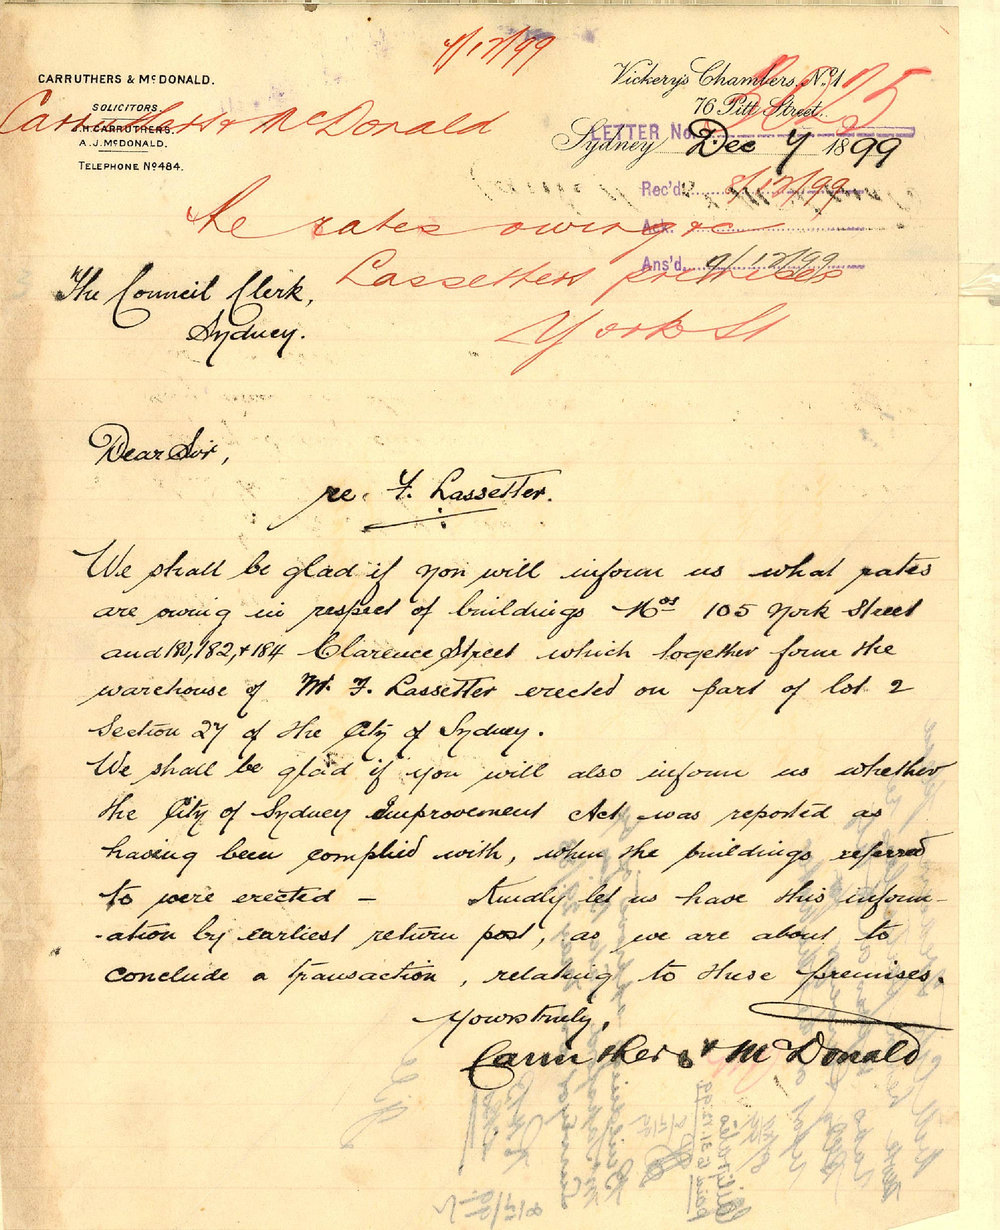 4/12/99
CARRUTHERS & McDONALD.
SOLICITORS.
J.H. CARRUTHERS.
A.J. McDONALD.
TELEPHONE No 484.
Vickery's Chambers, No 1
76 Pitt Street.
Sydney Dec 7 1899
LETTER No.
Rec'd. 8/12/99
Ack.
Ans'd. 9/12/99
Carruthers & McDonald
re rates owing re
Lassetters premises
York St
The Council Clerk,
Sydney.
Dear Sir,
re. F. Lassetter.
We shall be glad if you will inform us what rates
are owing in respect of buildings Nos 105 York Street
and 180, 182, & 184 Clarence Street which together form the
warehouse of Mr. F. Lassetter erected on part of lot 2
Section 27 of the City of Sydney.
We shall be glad if you will also inform us whether
the City of Sydney Improvement Act was reported as
having been complied with, when the buildings referred
to were erected – Kindly let us have this inform-
-ation by earliest return post, as we are about to
conclude a transaction, relating to these premises.
Yours truly,
Carruthers & McDonald